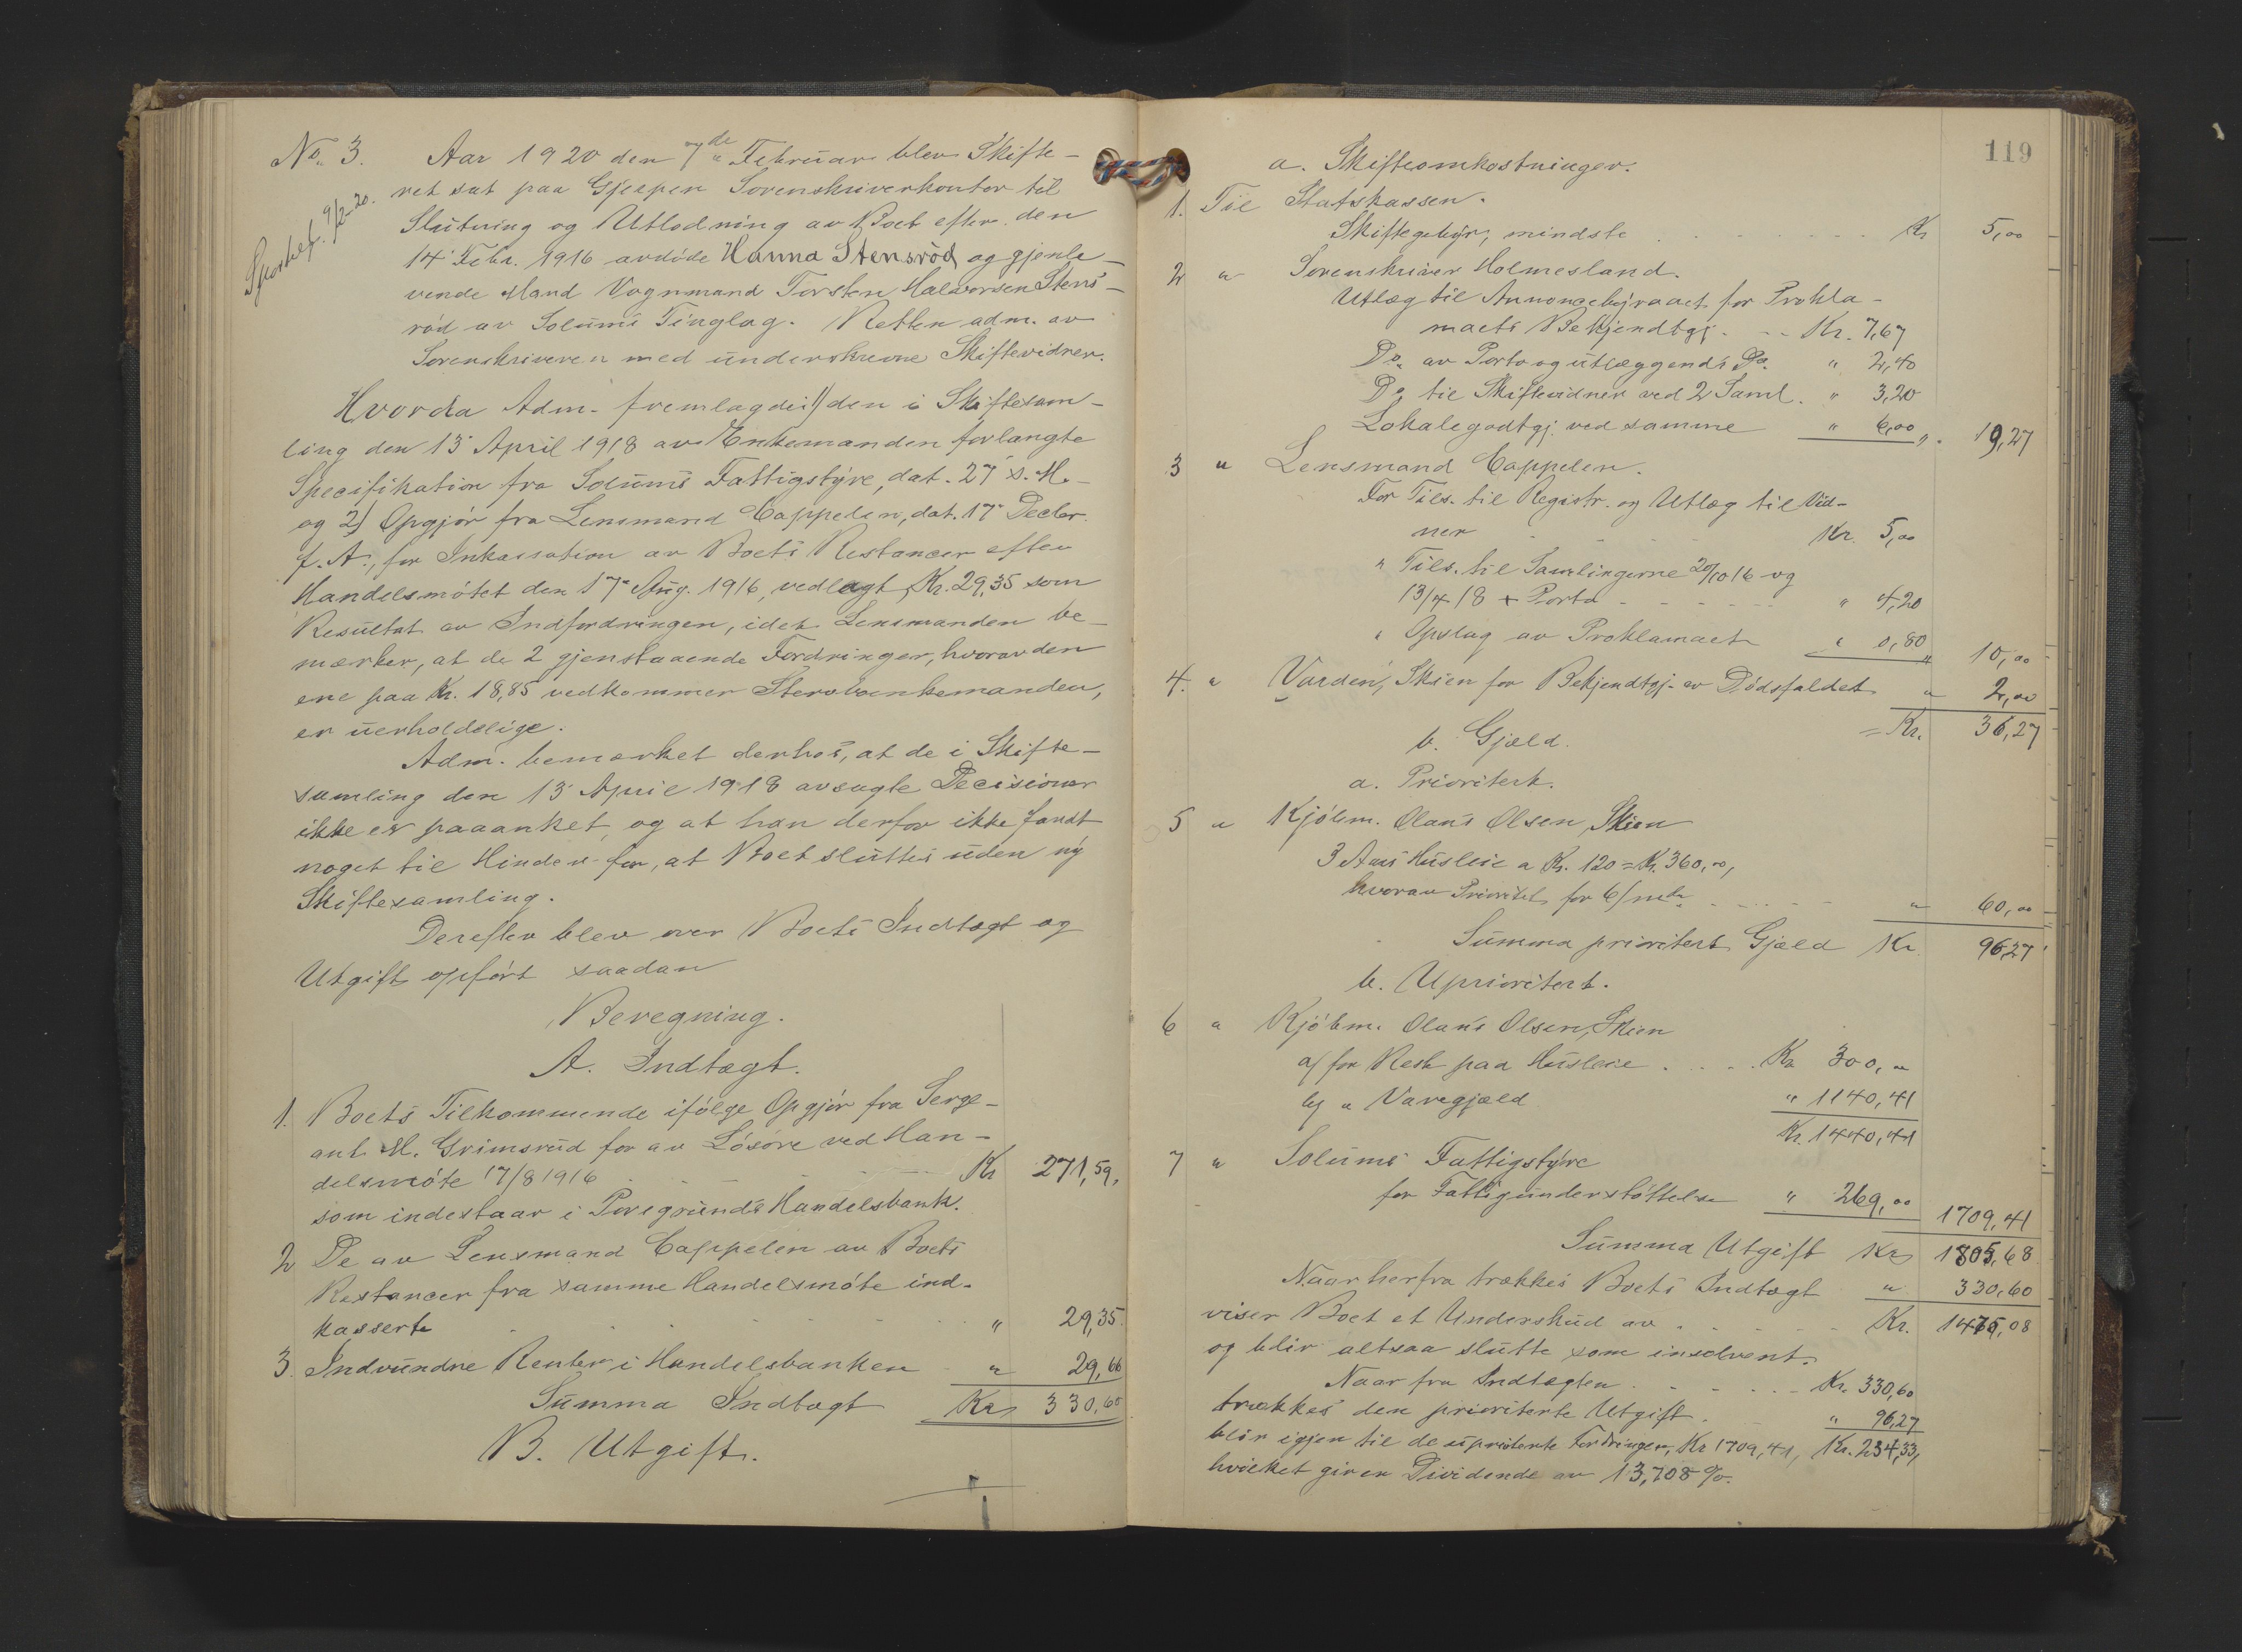 No. 3. Aar 1920 den 7de Februar blev Skifte-
ret sat paa Gjerpen Sorenskriverkontor til
Sportlef. 9/2-20.
Slutning og Utlodning av Boet efter den
14 Febr. 1916 avdöde Hanna Stensröd og gjenle-
vende Mand Vognmand Torsten Halvorsen Stens-
röd av Solums Tinglag. Retten adm. av
Sorenskriveren med underskrevne Skiftevidner.
Hvorda Adm. fremlagdes 1) den i Skiftesam-
ling den 13 April 1918 av Enkemanden forlangte
Specifikation fra Solums Fattigstyre, dat. 27 s. M.
og 2) Opgjör fra Lensmand Cappelen, dat. 17 Decbr.
f. A., for Inkassation av Boets Restancer efter
Handelsmötet den 17 Aug. 1916, vedlagt Kr. 29,35 som
Resultat av Indfordringen, idet Lensmanden be-
mærker, at de 2 gjenstaaende Fordringer, hvorav den
ene paa Kr. 18,85 vedkommer Stervboenkemanden,
er uerholdelige.
Adm. bemærket derhos, at de i Skifte-
samling den 13 April 1918 avsagte Decisioner
ikke er paaanket, og at han derfor ikke fandt
noget til Hinder for, at Boet sluttes uden ny
Skiftesamling.
Derefter blev over Boets Indtægt og
Utgift opfört saadan
Beregning.
A. Indtægt.
1. Boets Tilkommende ifölge Opgjör fra Serge-
ant M. Grimsrud for av Lösöre ved Han-
delsmöte 17/8 1916 Kr 271,59,
som indestaar i Porsgrunds Handelsbank.
2 De av Lensmand Cappelen av Boets
Restancer fra samme Handelsmöte ind-
kasserte " 29,35
3. Indvundne Renter i Handelsbanken " 29,66
Summa Indtægt Kr 330,60
B. Utgift.
119
a. Skifteomkostninger.
1. Til Statskassen.
Skiftegebyr, mindste Kr 5,00
2 " Sorenskriver Holmesland.
Utlæg til Annoncebyraaet for Prokla-
maets Bekjendtgj. Kr. 7,67
Do. av Porto og utlæggends Do. " 2,40
Do. til Skiftevidner ved 2 Saml. " 3,20
Lokalegodtgj. ved samme " 6,00 " 19,27
3 " Lensmand Cappelen.
For Tils. til Registr. og Utlæg til Vid-
ner Kr. 5,00
" Tils. til Samlingerne 20/10 16 og
13/4 18 + Porto " 4,20
" Opslag av Proklamaet " 0,80 " 10,00
4. " Varden, Skien for Bekjendtgj. av Dödsfaldet " 2,00
= Kr. 36,27
b. Gjæld.
a. Prioritert.
5 " Kjöbm. Olaus Olsen, Skien
3 Aars Husleie a Kr. 120 = Kr. 360,00,
hvorav Prioritet for 6/mdr. " 60,00
Summa prioritert Gjæld Kr 96,27
b. Uprioritert.
6 " Kjöbm. Olaus Olsen, Skien
a/ for Rest paa Husleie Kr 300,00
b/ " Varegjæld " 1140,41
Kr. 1440,41
7 " Solums Fattigstyre
for Fattigunderstöttelse " 269,00 1709,41
Summa Utgift Kr 1805,68
Naar herfra trækkes Boets Indtægt " 330,60
viser Boet et Underskud av Kr. 1475,08
og blir altsaa slutte som insolvent.
Naar fra Indtægten Kr. 330,60
trækkes den prioriterte Utgift " 96,27
blir igjen til de uprioriterte Fordringer, Kr 1709,41, Kr. 234,33,
hvilket gir en Dividende av 13,708 %.